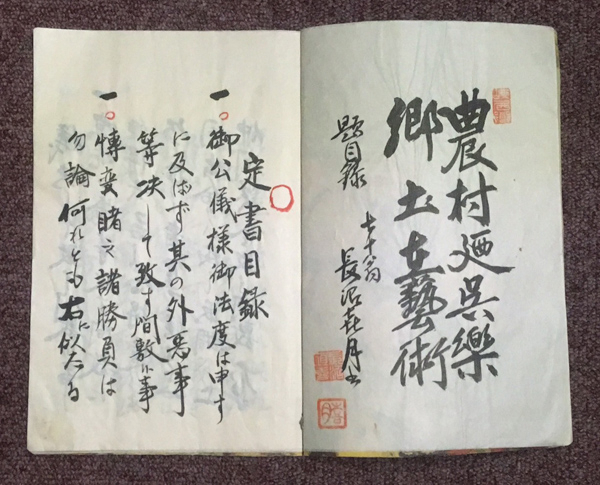 農村廼呉樂
郷土藝術
題目録
七十翁 長沼喜月
定書目録
一 御公儀様御法度は申す
に及ばず其の外悪事
等决して致す間敷小事
一 博奕賭之諸勝負は
勿論何れとも右に似たる